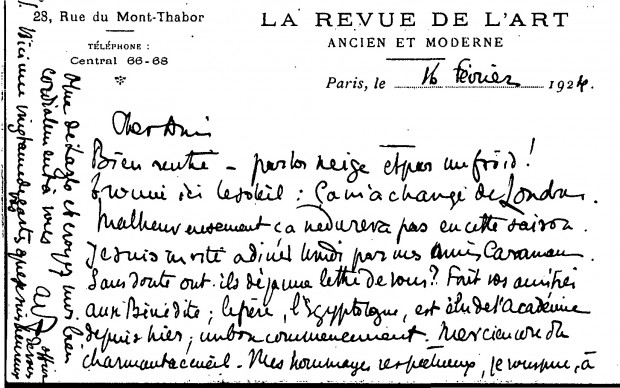 28, Rue du Mont-Thabor
TÉLÉPHONE :
Central 66-68
LA REVUE DE L'ART
ANCIEN ET MODERNE
Paris, le 16 février 1924.
Cher Ami
Bien rentré - par la neige et par un froid !
Trouvé ici le soleil : ça m'a changé de Londres.
Malheureusement ça ne durera pas en cette saison.
Je suis invité à dîner lundi par mes amis Caraman
Sans doute ont-ils déjà une lettre de vous ? Fait vos amitiés
aux Bénédite ; le père, l'Égyptologue, est élu de l'Académie
depuis hier ; un bon commencement. Merci encore du
charmant accueil. Mes hommages respectueux, je vous prie, à
Mme de Laszlo et croyez moi bien
cordialement à vous
D'ici une vingtaine de que je suis heureux